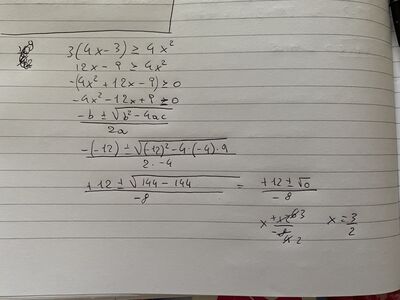 3(4x-3) ≥ 4x²
12x - 9 ≥ 4x²
-(4x² + 12x - 9) ≥ 0
-4x² - 12x + 9 ≥ 0
-b ± √b² - 4ac / 2a
-(-12) ± √(-12)² - 4·(-4)·9 / 2·-4
+12 ± √144 - 144 / -8 = +12 ± √0 / -8
x = 3/2